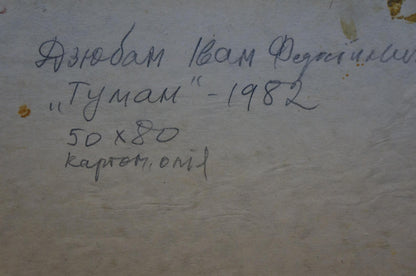 Дзюбан Іван Федорович
„Туман" - 1982
50 х 80
картон, олія